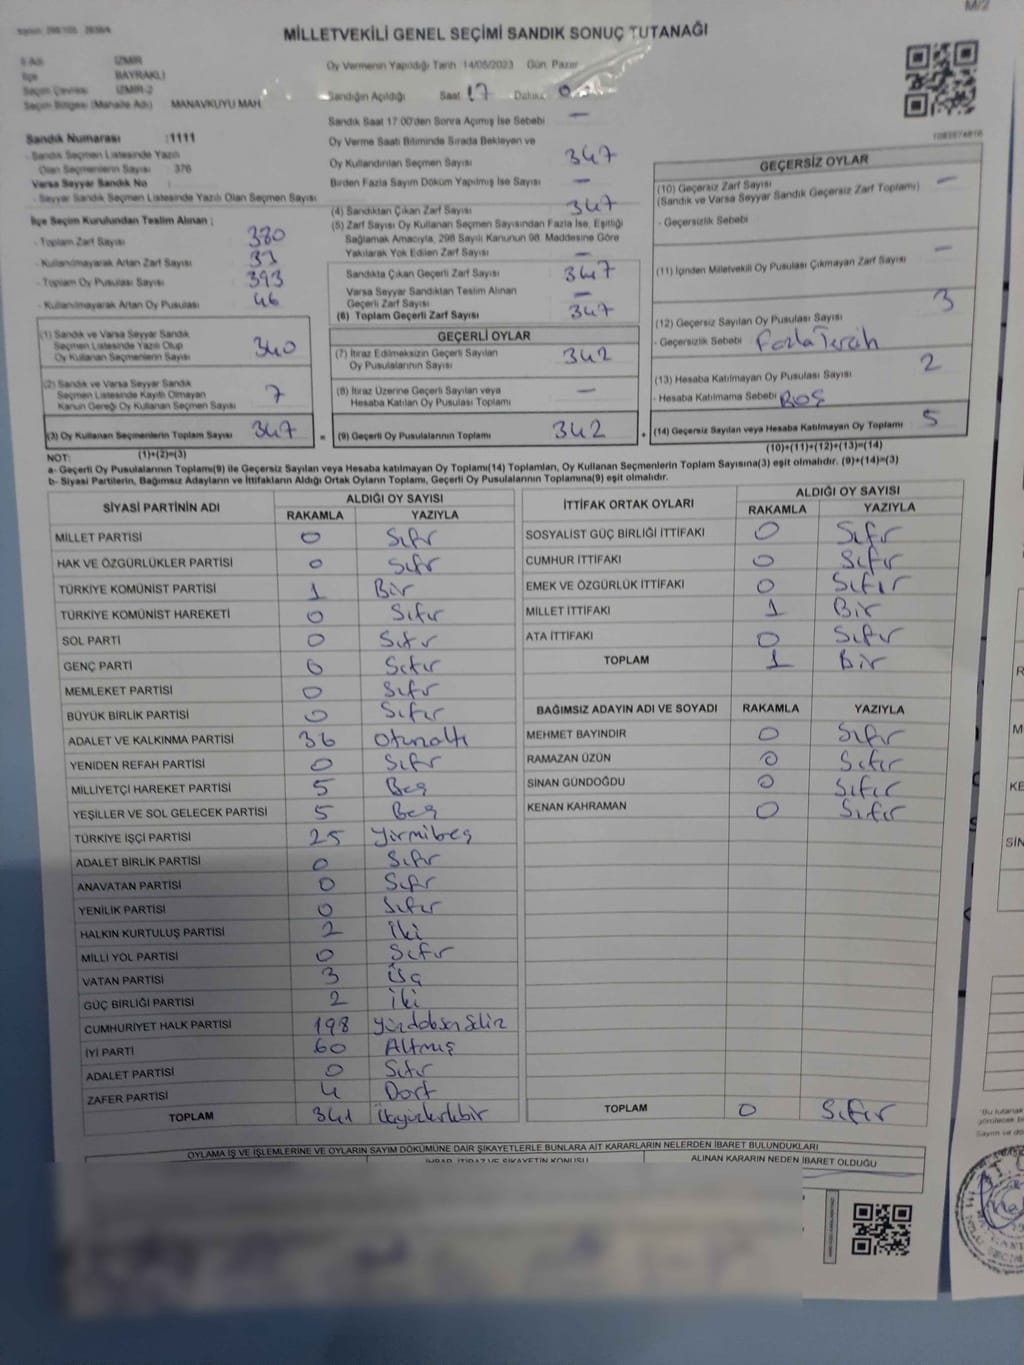 M/2
MİLLETVEKİLİ GENEL SEÇİMİ SANDIK SONUÇ TUTANAĞI
İl Adı İZMİR
İlçe BAYRAKLI
Seçim Çevresi İZMİR-2
Seçim Bölgesi (Mahalle Adı) MANAVKUYU MAH.
Oy Vermenin Yapıldığı Tarih 14/05/2023 Gün: Pazar
Sandığın Açıldığı Saat 17 Dakika 0
Sandık Saat 17:00'den Sonra Açılmış İse Sebebi —
Oy Verme Saati Bitiminde Sırada Bekleyen ve
Oy Kullandırılan Seçmen Sayısı 347
Birden Fazla Sayım Döküm Yapılmış İse Sayısı —
Sandık Numarası :1111
- Sandık Seçmen Listesinde Yazılı
Olan Seçmenlerin Sayısı : 376
Varsa Seyyar Sandık No
- Seyyar Sandık Seçmen Listesinde Yazılı Olan Seçmen Sayısı
İlçe Seçim Kurulundan Teslim Alınan ;
- Toplam Zarf Sayısı 380
- Kullanılmayarak Artan Zarf Sayısı 33
- Toplam Oy Pusulası Sayısı 393
- Kullanılmayarak Artan Oy Pusulası 46
(1) Sandık ve Varsa Seyyar Sandık
Seçmen Listesinde Yazılı Olup
Oy Kullanan Seçmenlerin Sayısı 340
(2) Sandık ve Varsa Seyyar Sandık
Seçmen Listesinde Kayıtlı Olmayan
Kanun Gereği Oy Kullanan Seçmen Sayısı 7
(3) Oy Kullanan Seçmenlerin Toplam Sayısı 347
(4) Sandıktan Çıkan Zarf Sayısı 347
(5) Zarf Sayısı Oy Kullanan Seçmen Sayısından Fazla İse, Eşitliği
Sağlamak Amacıyla, 298 Sayılı Kanunun 98. Maddesine Göre
Yakılarak Yok Edilen Zarf Sayısı —
Sandıkta Çıkan Geçerli Zarf Sayısı 347
Varsa Seyyar Sandıktan Teslim Alınan
Geçerli Zarf Sayısı —
(6) Toplam Geçerli Zarf Sayısı 347
GEÇERLİ OYLAR
(7) İtiraz Edilmeksizin Geçerli Sayılan
Oy Pusulalarının Sayısı 342
(8) İtiraz Üzerine Geçerli Sayılan veya
Hesaba Katılan Oy Pusulası Toplamı —
= (9) Geçerli Oy Pusulalarının Toplamı 342
GEÇERSİZ OYLAR
(10) Geçersiz Zarf Sayısı —
(Sandık ve Varsa Seyyar Sandık Geçersiz Zarf Toplamı)
- Geçersizlik Sebebi
(11) İçinden Milletvekili Oy Pusulası Çıkmayan Zarf Sayısı —
(12) Geçersiz Sayılan Oy Pusulası Sayısı 3
- Geçersizlik Sebebi Fazla Tercih
(13) Hesaba Katılmayan Oy Pusulası Sayısı 2
- Hesaba Katılmama Sebebi BOŞ
+ (14) Geçersiz Sayılan veya Hesaba Katılmayan Oy Toplamı 5
NOT: (1)+(2)=(3) (10)+(11)+(12)+(13)=(14)
a- Geçerli Oy Pusulalarının Toplamı(9) ile Geçersiz Sayılan veya Hesaba katılmayan Oy Toplamı(14) Toplamları, Oy Kullanan Seçmenlerin Toplam Sayısına(3) eşit olmalıdır. (9)+(14)=(3)
b- Siyasi Partilerin, Bağımsız Adayların ve İttifakların Aldığı Ortak Oyların Toplamı, Geçerli Oy Pusulalarının Toplamına(9) eşit olmalıdır.
SİYASİ PARTİNİN ADI ALDIĞI OY SAYISI
RAKAMLA YAZIYLA
MİLLET PARTİSİ 0 Sıfır
HAK VE ÖZGÜRLÜKLER PARTİSİ 0 Sıfır
TÜRKİYE KOMÜNİST PARTİSİ 1 Bir
TÜRKİYE KOMÜNİST HAREKETİ 0 Sıfır
SOL PARTİ 0 Sıfır
GENÇ PARTİ 0 Sıfır
MEMLEKET PARTİSİ 0 Sıfır
BÜYÜK BİRLİK PARTİSİ 0 Sıfır
ADALET VE KALKINMA PARTİSİ 36 Otuzaltı
YENİDEN REFAH PARTİSİ 0 Sıfır
MİLLİYETÇİ HAREKET PARTİSİ 5 Beş
YEŞİLLER VE SOL GELECEK PARTİSİ 5 Beş
TÜRKİYE İŞÇİ PARTİSİ 25 Yirmibeş
ADALET BİRLİK PARTİSİ 0 Sıfır
ANAVATAN PARTİSİ 0 Sıfır
YENİLİK PARTİSİ 0 Sıfır
HALKIN KURTULUŞ PARTİSİ 2 İki
MİLLİ YOL PARTİSİ 0 Sıfır
VATAN PARTİSİ 3 Üç
GÜÇ BİRLİĞİ PARTİSİ 2 İki
CUMHURİYET HALK PARTİSİ 198 Yüzdoksansekiz
İYİ PARTİ 60 Altmış
ADALET PARTİSİ 0 Sıfır
ZAFER PARTİSİ 4 Dört
TOPLAM 341 Üçyüzkırkbir
İTTİFAK ORTAK OYLARI ALDIĞI OY SAYISI
RAKAMLA YAZIYLA
SOSYALİST GÜÇ BİRLİĞİ İTTİFAKI 0 Sıfır
CUMHUR İTTİFAKI 0 Sıfır
EMEK VE ÖZGÜRLÜK İTTİFAKI 0 Sıfır
MİLLET İTTİFAKI 1 Bir
ATA İTTİFAKI 0 Sıfır
TOPLAM 1 Bir
BAĞIMSIZ ADAYIN ADI VE SOYADI RAKAMLA YAZIYLA
MEHMET BAYINDIR 0 Sıfır
RAMAZAN ÜZÜN 0 Sıfır
SİNAN GÜNDOĞDU 0 Sıfır
KENAN KAHRAMAN 0 Sıfır
TOPLAM 0 Sıfır
OYLAMA İŞ VE İŞLEMLERİNE VE OYLARIN SAYIM DÖKÜMÜNE DAİR ŞİKAYETLERLE BUNLARA AİT KARARLARIN NELERDEN İBARET BULUNDUKLARI
İHBAR, İTİRAZ VE ŞİKAYETİN KONUSU ALINAN KARARIN NEDEN İBARET OLDUĞU